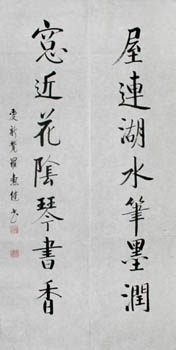 屋連湖水筆墨潤
窓近花陰琴書香
愛新覺羅惠統书